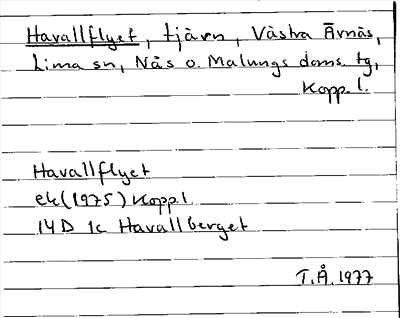 Havallflyet, tjärn, Västra Ärnäs,
Lima sn, Nås o. Malungs doms. tg,
Kopp. l.
Havallflyet
ek (1975) Kopp. l
14 D 1c Havallberget
T.Å. 1977